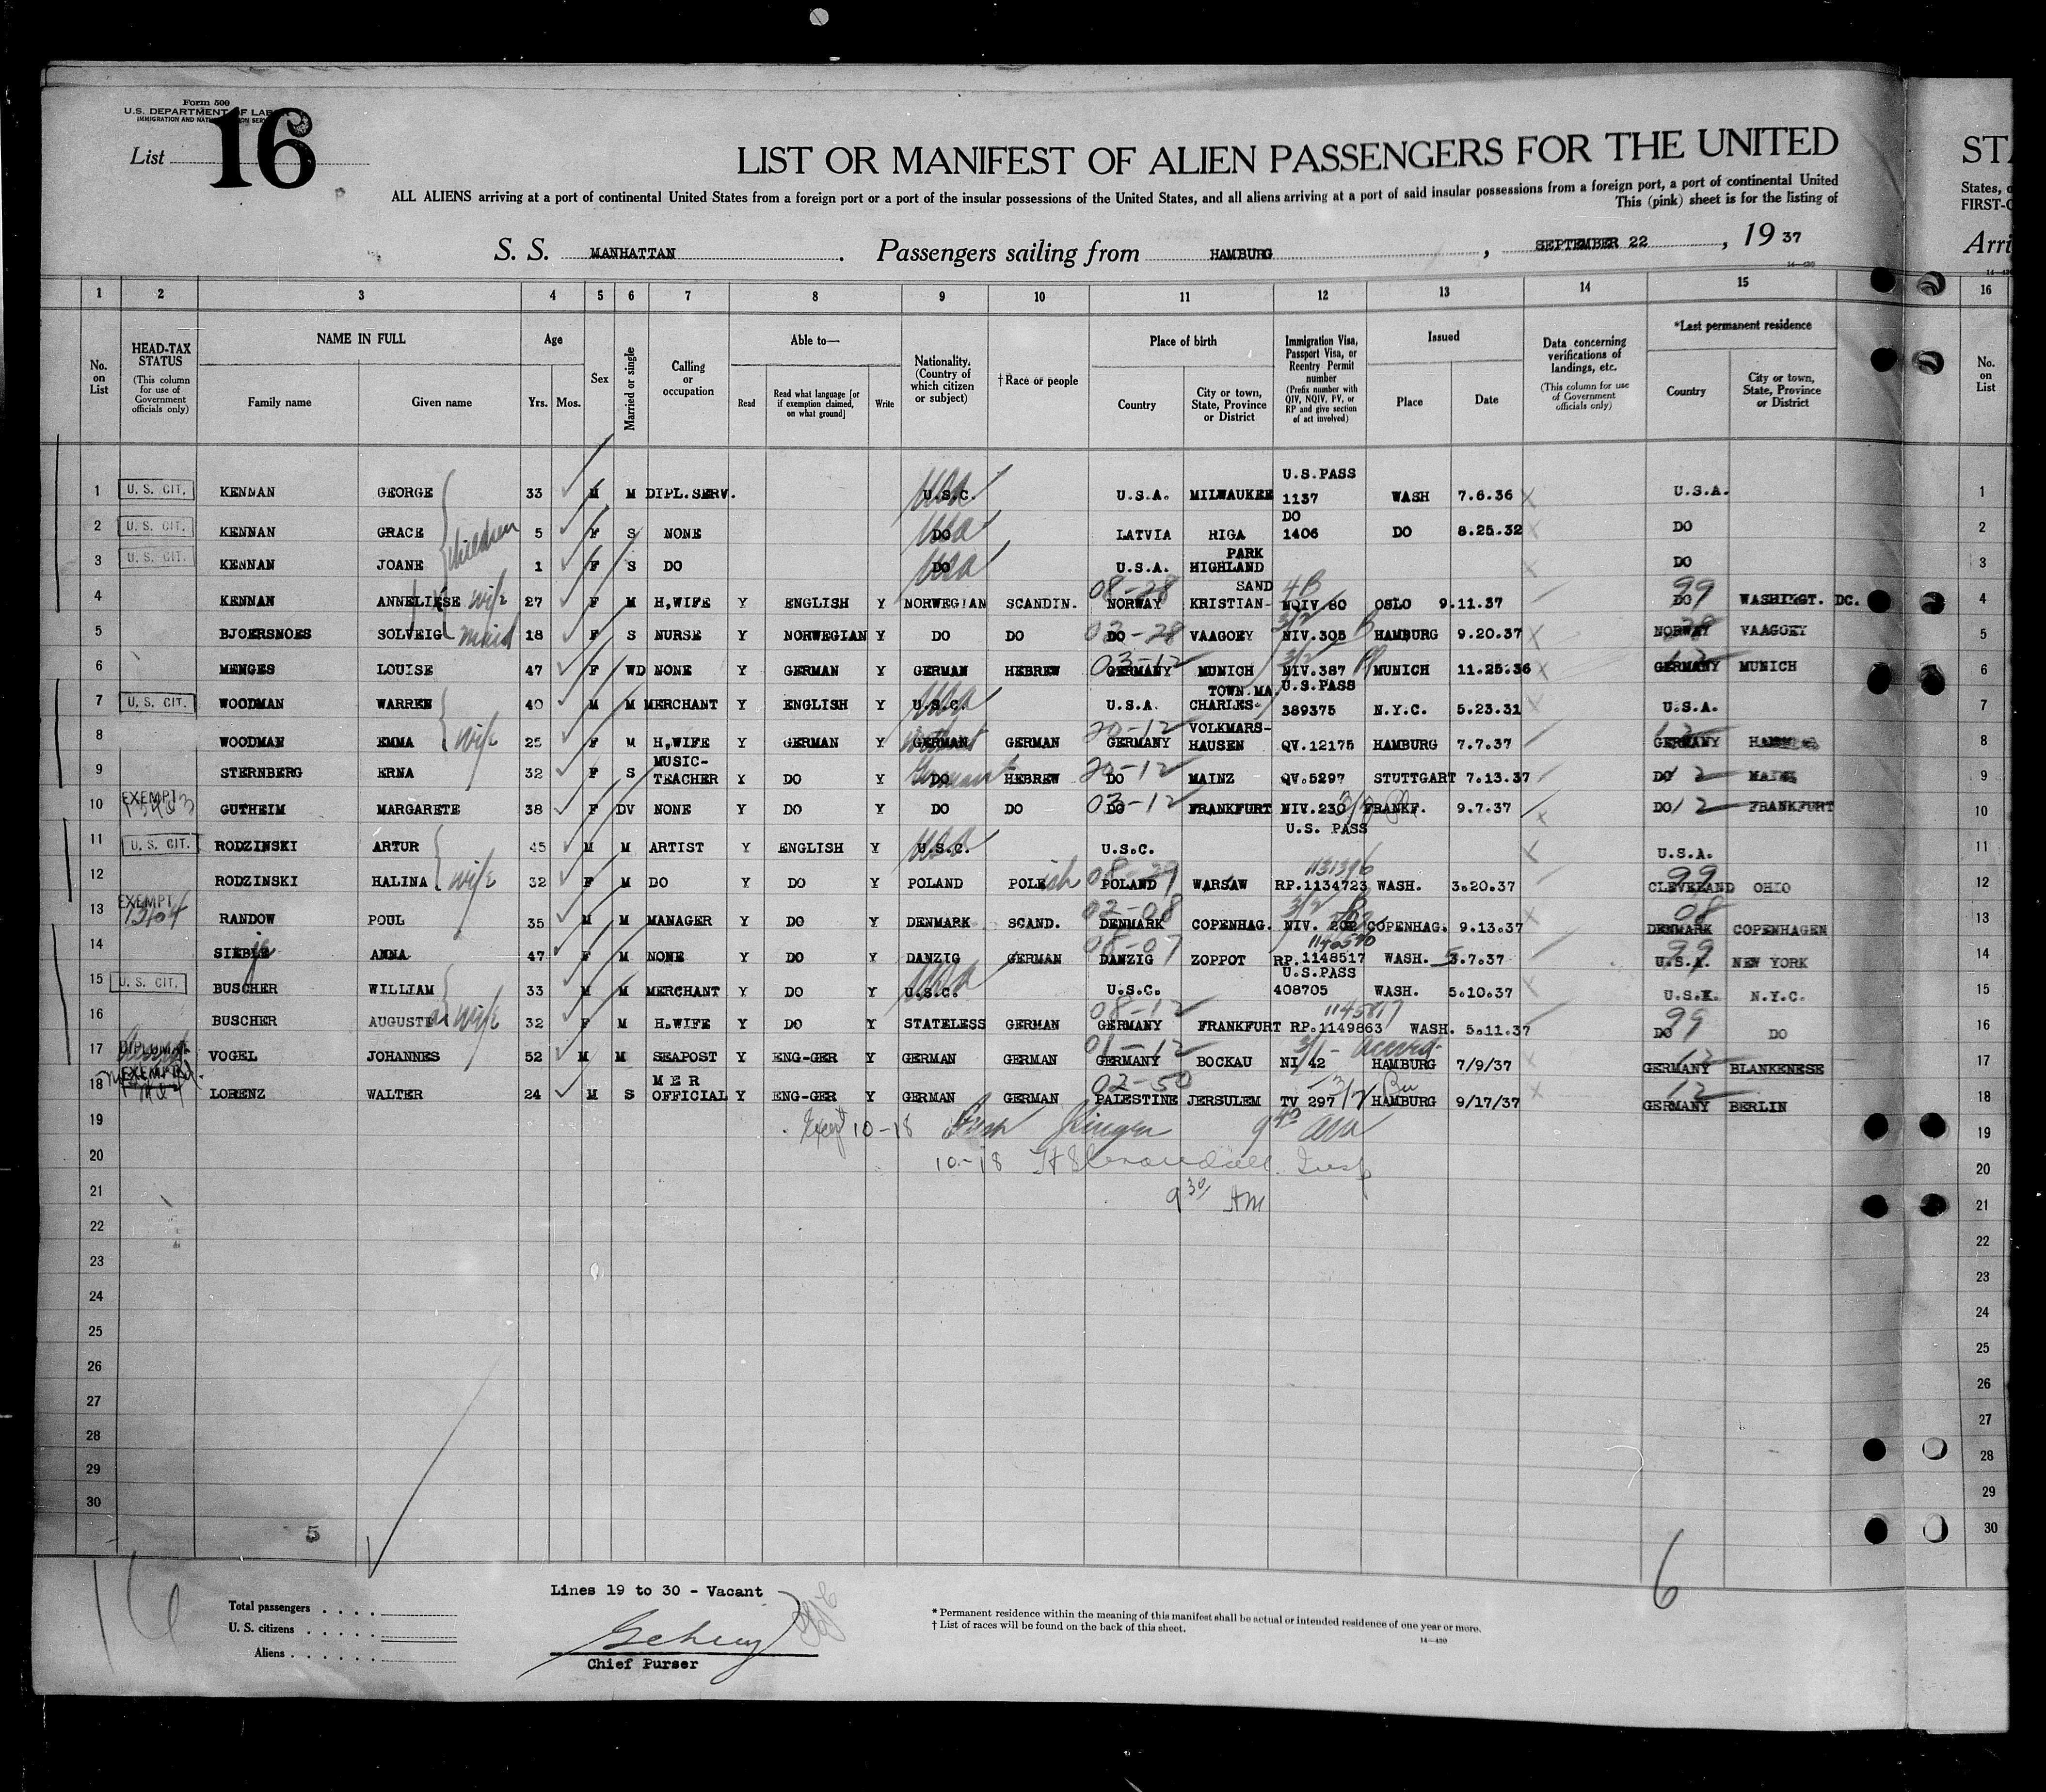 Form 500
U.S. DEPARTMENT OF LAB
IMMIGRATION AND NAT
List 16
LIST OR MANIFEST OF ALIEN PASSENGERS FOR THE UNITED
STA
ALL ALIENS arriving at a port of continental United States from a foreign port or a port of the insular possessions of the United States, and all aliens arriving at a port of said insular possessions from a foreign port, a port of continental United
States, o
This (pink) sheet is for the listing of
FIRST-C
S. S. MANHATTAN. Passengers sailing from HAMBURG, SEPTEMBER 22, 1937
Arri
14-430
1 2 3 4 5 6 7 8 9 10 11 12 13 14 15 16
No. on List
HEAD-TAX STATUS (This column for use of Government officials only)
NAME IN FULL Family name Given name
Age Yrs. Mos.
Sex
Married or single
Calling or occupation
Able to— Read Read what language [or if exemption claimed, on what ground] Write
Nationality. (Country of which citizen or subject)
†Race or people
Place of birth Country City or town, State, Province or District
Immigration Visa, Passport Visa, or Reentry Permit number (Prefix number with QIV, NQIV, PV, or RP and give section of act involved)
Issued Place Date
Data concerning verifications of landings, etc. (This column for use of Government officials only)
*Last permanent residence Country City or town, State, Province or District
No. on List
1 U. S. CIT. KENNAN GEORGE 33 M M DIPL.SERV. U.S.C. usa U.S.A. MILWAUKEE U.S.PASS 1137 WASH 7.6.36 U.S.A. 1
2 U. S. CIT. KENNAN GRACE children 5 F S NONE DO usa LATVIA RIGA DO 1406 DO 8.25.32 DO 2
3 U. S. CIT. KENNAN JOANE 1 F S DO DO usa U.S.A. HIGHLAND PARK DO 3
4 KENNAN ANNELIESE wife 27 F M H,WIFE Y ENGLISH Y NORWEGIAN SCANDIN. 08-28 NORWAY KRISTIAN-SAND 4B NQIV 80 OSLO 9.11.37 DO 99 WASHINGT. DC. 4
5 BJOERSNOES SOLVEIG maid 18 F S NURSE Y NORWEGIAN Y DO DO 02-28 DO VAAGOEY 3/2 NIV.305 HAMBURG 9.20.37 NORWAY 28 VAAGOEY 5
6 MENGES LOUISE 47 F WD NONE Y GERMAN Y GERMAN HEBREW 03-12 GERMANY MUNICH 3/2 NIV.387 MUNICH 11.25.36 GERMANY 12 MUNICH 6
7 U. S. CIT. WOODMAN WARREN 40 M M MERCHANT Y ENGLISH Y U.S.C. usa U.S.A. CHARLES-TOWN.MA. U.S.PASS 389375 N.Y.C. 5.23.31 U.S.A. 7
8 WOODMAN EMMA wife 25 F M H,WIFE Y GERMAN Y GERMAN GERMAN 20-12 GERMANY VOLKMARS-HAUSEN QV.12175 HAMBURG 7.7.37 GERMANY 12 8
9 STERNBERG ERNA 32 F S MUSIC-TEACHER Y DO Y DO HEBREW 20-12 DO MAINZ QV.5297 STUTTGART 7.13.37 DO 12 MAINZ 9
10 EXEMPT GUTHEIM MARGARETE 38 F DV NONE Y DO Y DO DO 03-12 DO FRANKFURT NIV.230 3/2 FRANKF. 9.7.37 DO 12 FRANKFURT 10
11 U. S. CIT. RODZINSKI ARTUR 45 M M ARTIST Y ENGLISH Y U.S.C. usa U.S.C. U.S. PASS U.S.A. 11
12 RODZINSKI HALINA wife 32 F M DO Y DO Y POLAND POLEish 08-29 POLAND WARSAW 1131396 RP.1134723 WASH. 3.20.37 99 CLEVELAND OHIO 12
13 EXEMPT RANDOW POUL 35 M M MANAGER Y DO Y DENMARK SCAND. 02-08 DENMARK COPENHAG. 3/2 NIV. 202 COPENHAG. 9.13.37 08 DENMARK COPENHAGEN 13
14 SIEBLE ANNA 47 F M NONE Y DO Y DANZIG GERMAN 08-07 DANZIG ZOPPOT RP.1148517 WASH. 5.7.37 99 U.S.A. NEW YORK 14
15 U. S. CIT. BUSCHER WILLIAM 33 M M MERCHANT Y DO Y U.S.C. usa U.S.C. U.S.PASS 408705 WASH. 5.10.37 U.S.A. N.Y.C. 15
16 BUSCHER AUGUSTE wife 32 F M H.WIFE Y DO Y STATELESS GERMAN 08-12 GERMANY FRANKFURT 1145817 RP.1149863 WASH. 5.11.37 DO 99 DO 16
17 DIPLOMAT VOGEL JOHANNES 52 M M SEAPOST Y ENG-GER Y GERMAN GERMAN 01-12 GERMANY BOCKAU 3/1- NI 42 HAMBURG 7/9/37 12 GERMANY BLANKENESE 17
18 EXEMPT LORENZ WALTER 24 M S MER OFFICIAL Y ENG-GER Y GERMAN GERMAN 02-50 PALESTINE JERSULEM TV 297 3/2 HAMBURG 9/17/37 12 GERMANY BERLIN 18
19 10-18 9 40 19
20 10-18 Insp 20
21 9 30 AM 21
22 22
23 23
24 24
25 25
26 26
27 27
28 28
29 29
30 30
5
16
6
Lines 19 to 30 - Vacant
Total passengers
U. S. citizens
Aliens
Chief Purser
* Permanent residence within the meaning of this manifest shall be actual or intended residence of one year or more.
† List of races will be found on the back of this sheet.
14—430